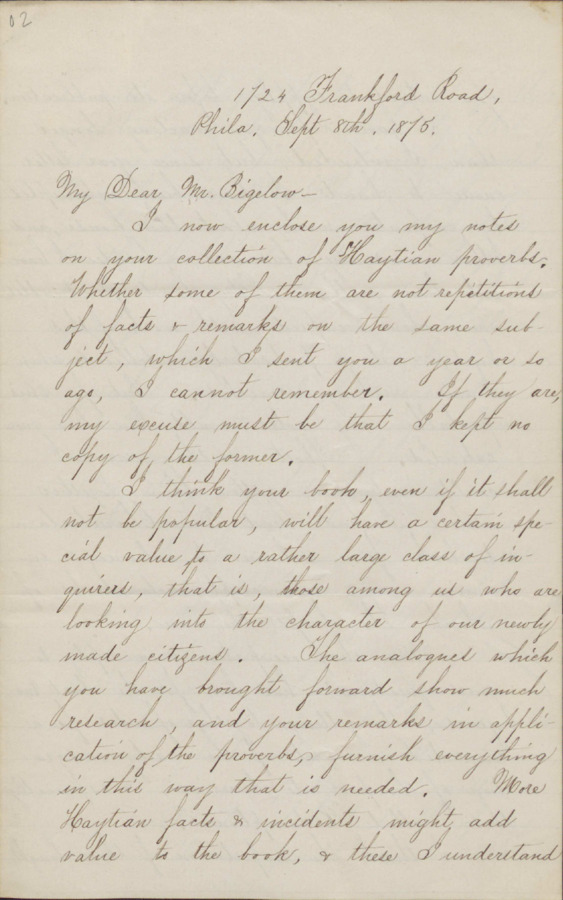 02
1724 Frankford Road,
Phila. Sept 8th, 1875.
My Dear Mr. Bigelow—
I now enclose you my notes
on your collection of Haytian proverbs.
Whether some of them are not repetitions
of facts & remarks on the same sub-
ject, which I sent you a year or so
ago, I cannot remember. If they are,
my excuse must be that I kept no
copy of the former.
I think your book, even if it shall
not be popular, will have a certain spe-
cial value to a rather large class of in-
quirers, that is, those among us who are
looking into the character of our newly
made citizens. The analogues which
you have brought forward show much
research, and your remarks in appli-
cation of the proverbs, furnish everything
in this way that is needed. More
Haytian facts & incidents might add
value to the book, & these I understand